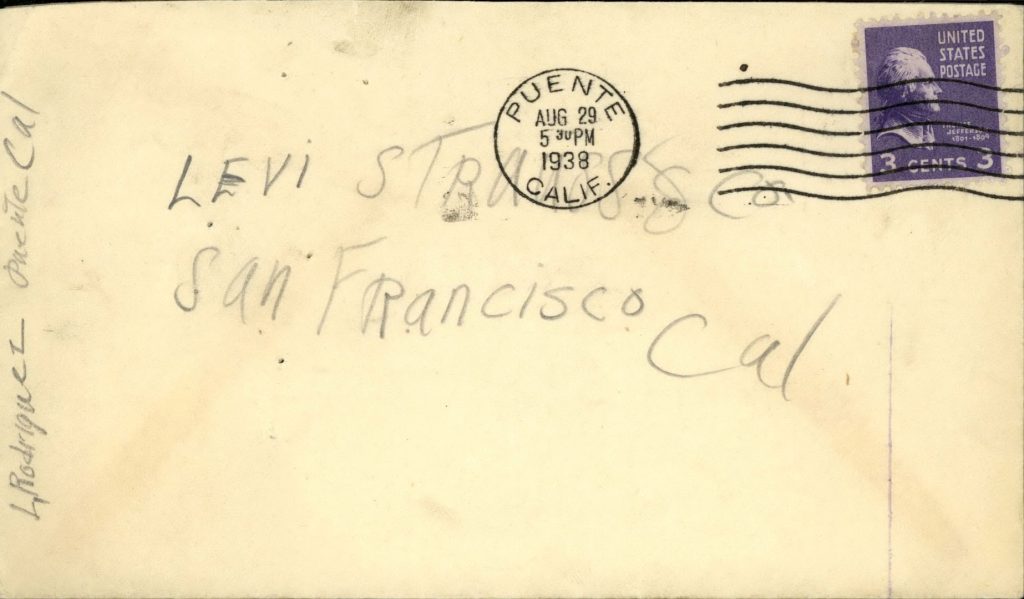 L, Rodriquez Puente Cal
PUENTE
AUG 29
5 30 PM
1938
CALIF.
UNITED
STATES
POSTAGE
THOMAS
JEFFERSON
1801-1809
3 CENTS 3
LEVI STRauss & Co
San FRancisco
Cal